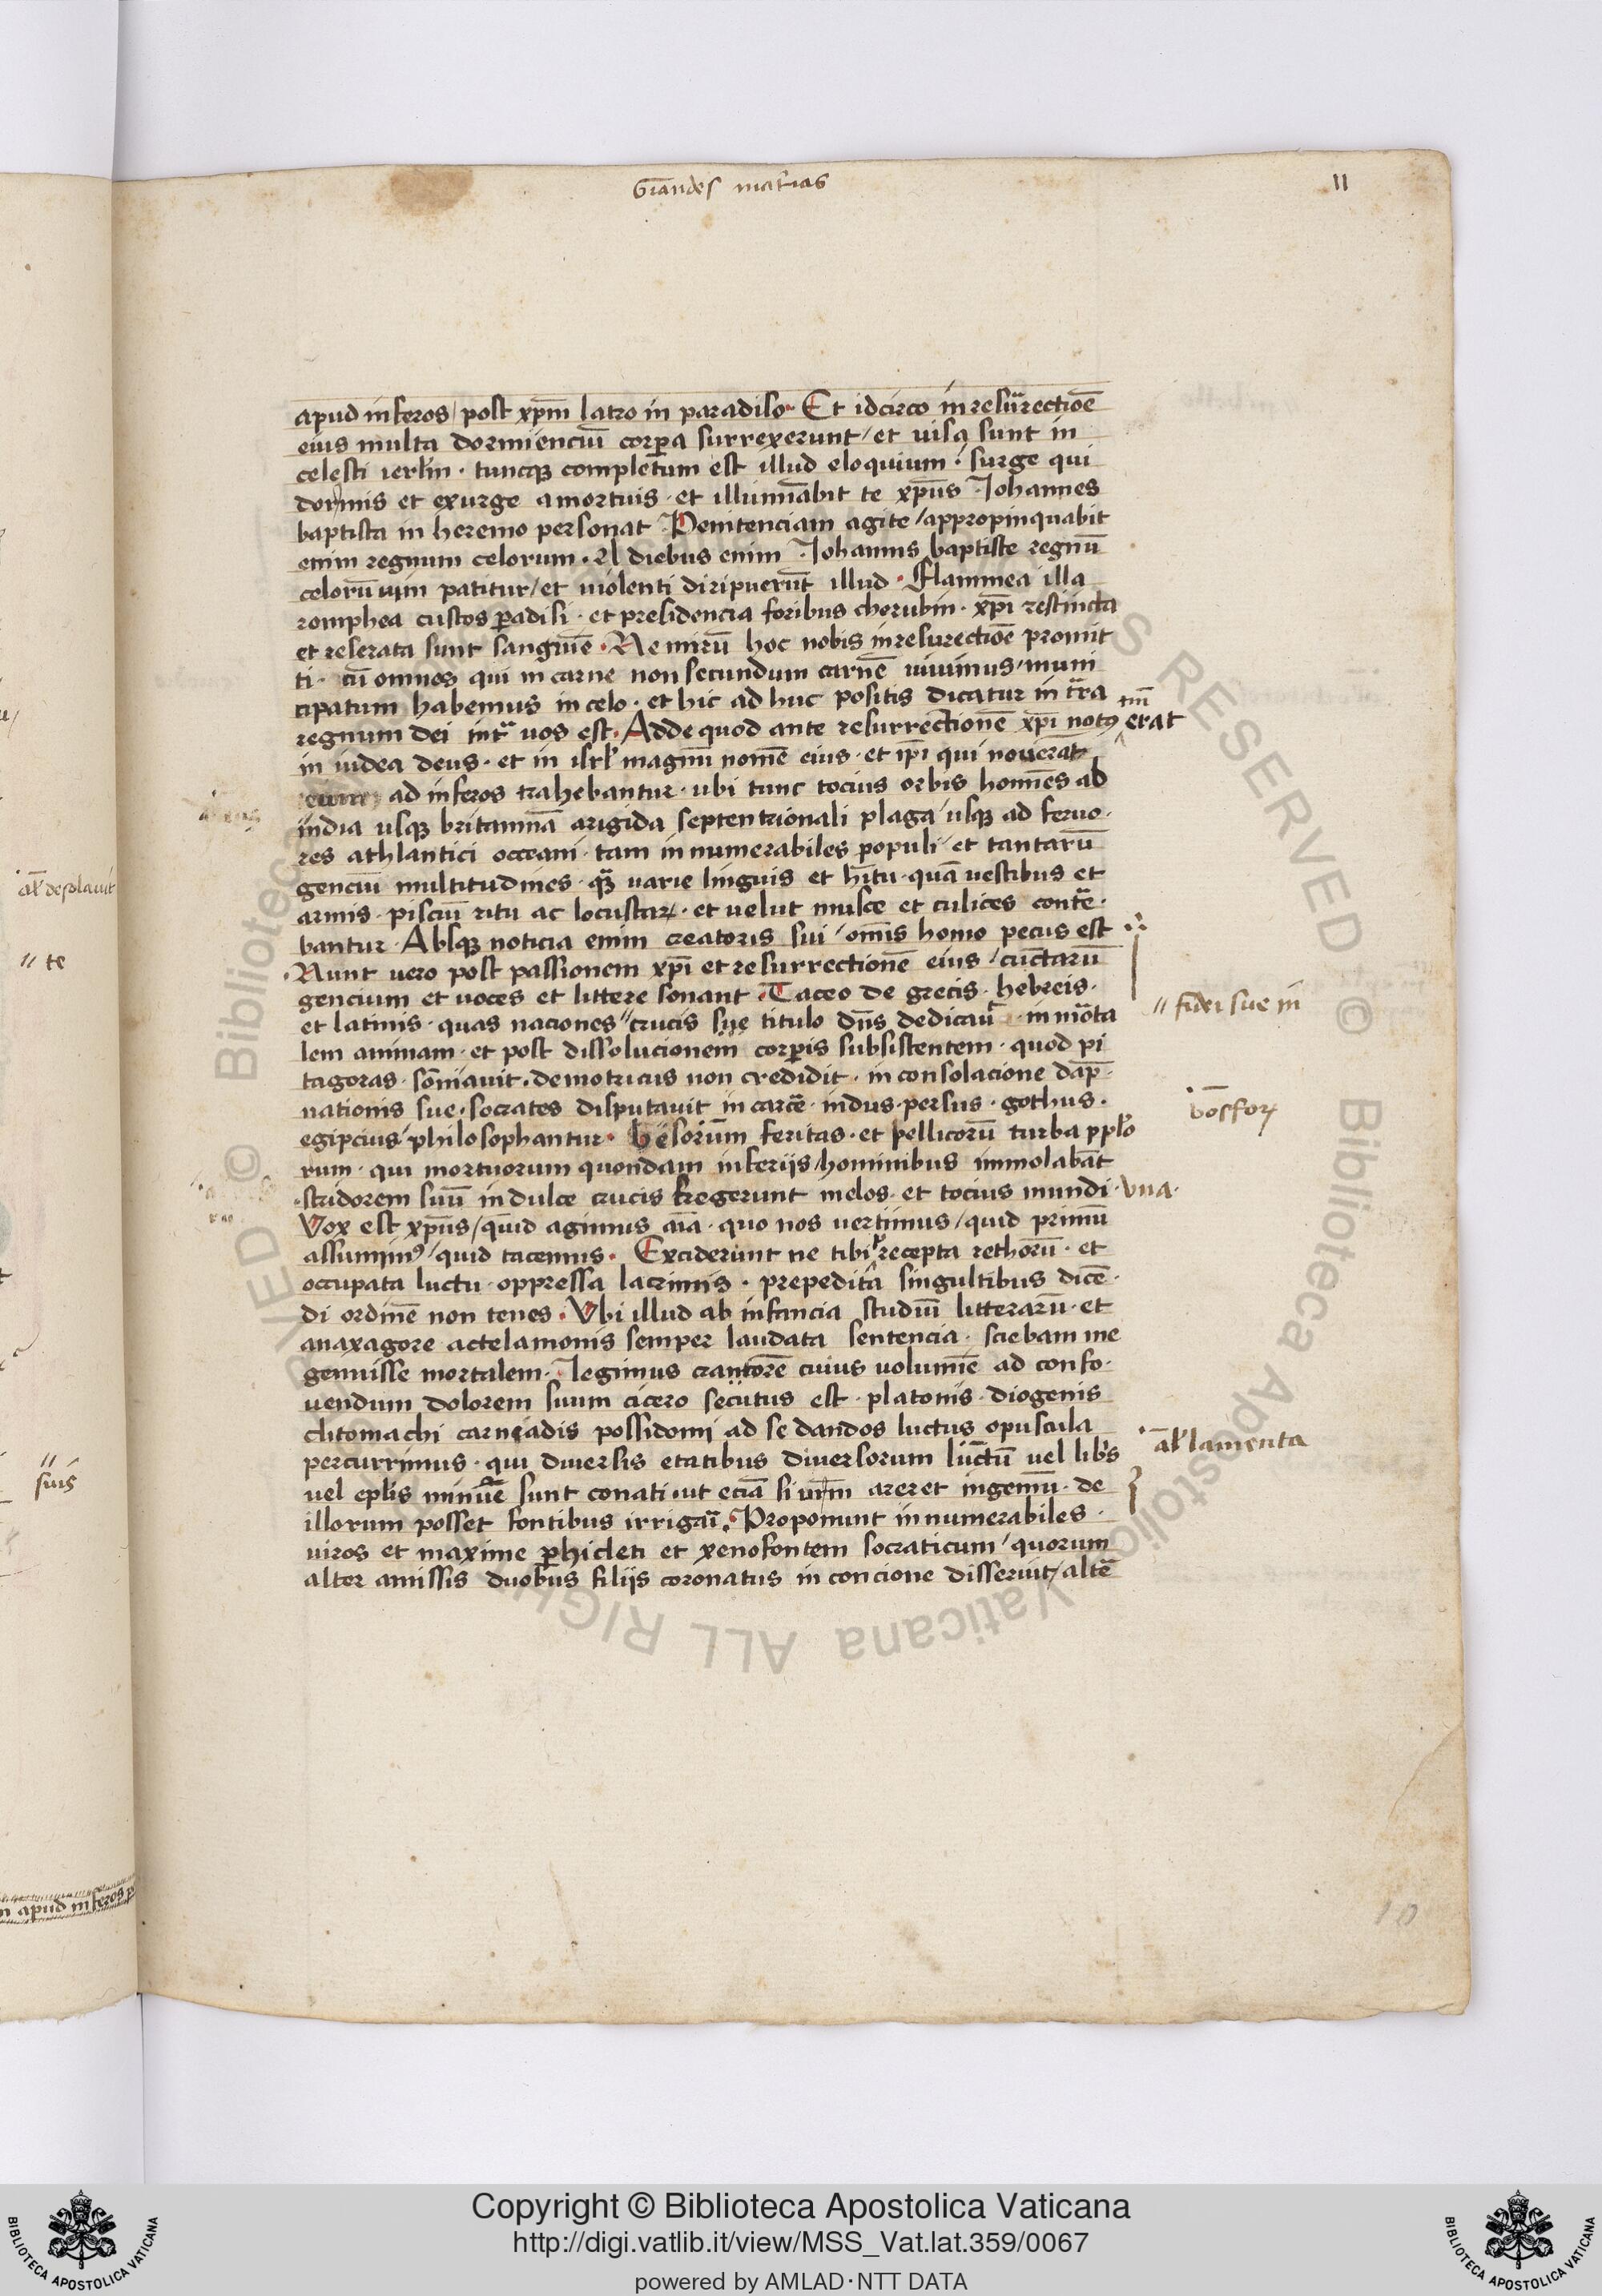 Grandes materias
11
apud inferos / post xp̄m latro in paradiso · Et idcirco in resurectiōe
eius multa dormienciū corꝑa surrexerunt / et uisa sunt in
celesti ierl̄m · tuncqꝫ completum est illud eloquium · surge qui
dormis et exurge a mortuis · et illuminabit te xp̄us · Johannes
baptista in heremo personat Penitenciam agite / appropinquabit
enim regnum celorum · A diebus enim Johannis baptiste regnū
celorū uim patitur / et uiolenti diripuerūt illud · Flammea illa
romphea custos ꝑadisi · et presidencia foribus cherubin · xp̄i restincta
et reserata sunt sanguīe · Ne mirū hoc nobis in resurectiōe promit
ti · cū omnes qui in carne non secundum carnē uiuimus / muni
cipatum habemus in celo · et hic ad huc positis dicatur in tr̄ra
regnum dei intr̄ uos est · Adde quod ante resurrectionē xp̄i notꝰ tm̄ erat
in iudea deus · et in isrl̄ magnū nomē eius · et ip̄i qui nouerāt
eum ad inferos trahebantur · ubi tunc tocius orbis homīes ab
india usqꝫ britanniā a rigida septentrionali plaga / usqꝫ ad feruo·
res athlantici occeani · tam innumerabiles populi / et tantarū
genciū multitudines · qꝫ varie linguis et hītu · quā vestibus et
armis · pisciū ritu ac locustaꝝ · et velut musce et culices conte̅·
bantur · Absqꝫ noticia enim creatoris sui / om̄is homo pecus est
Nunt uero post passionem xp̄i et resurrectionē eius / cunctarū
gencium et uoces et littere sonant · Taceo de grecis · hebreis ·
et latinis · quas naciones // crucis sue titulo dn̄s dedicauͭ · in mōta
// fidei sue in
lem animam · et post dissolucionem corꝑis subsistentem · quod pi
tagoras · sōniauit · demotricus non credidit · in consolacione dāp·
nationis sue · socrates disputauit in carce̅ · indus · persus · gothus ·
· bōsfoꝝ
egipcius / philosophantur · besorum feritas · et pellicorū turba ppl̄o
rum · qui mortuorum quondam inferijs / hominibus immolabāt
· stridorem suū in dulce crucis fregerunt melos · et tocius mundi · vna ·
Vox est xp̄us / quid agimus aīa · quo nos vertimus / quid primū
assumimꝰ / quid tacemus · Exciderunt ne tibi p̄recepta rethorū · et
occupata luctu · oppressa lacrimis · prepedita singultibus dicē·
di ordinē non tenes · Vbi illud ab infancia studiū litterarū · et
anaxagore ac telamonis semper laudata sentencia · sciebam me
genuisse mortalem · legimus crantorē cuius volumīe ad confo·
uendum dolorem suum cicero secutus est · platonis · diogenis
clitomachi carneadis possidonij ad sedandos luctus opuscula
percurrimus · qui diuersis etatibus diuersorum luctū vel libr̄s
· al̄ lamenta
vel epl̄is minue̅ sunt conati · ut eciā si nr̄m areret ingeniū · de
illorum posset fontibus irrigari · Proponunt innumerabiles ·
viros et maxime ꝑhicleti et xenofontem socraticum / quorum
alter amissis duobus filijs coronatus in concione disseruit / alte̅
al̄ desolauit
// te
//
suis
apud inferos p
10
© Biblioteca Apostolica Vaticana ALL RIGHTS RESERVED
Copyright © Biblioteca Apostolica Vaticana
http://digi.vatlib.it/view/MSS_Vat.lat.359/0067
powered by AMLAD·NTT DATA
BIBLIOTECA APOSTOLICA VATICANA
BIBLIOTECA APOSTOLICA VATICANA